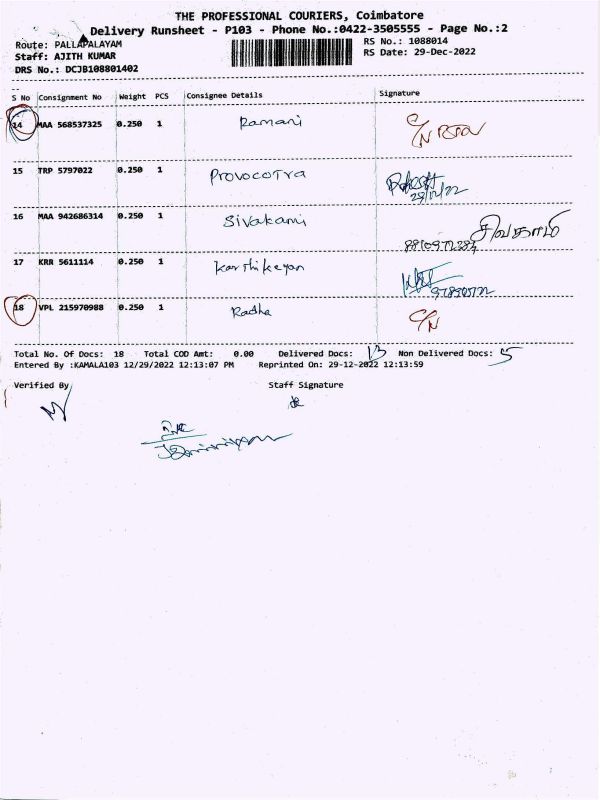 THE PROFESSIONAL COURIERS, Coimbatore
Delivery Runsheet - P103 - Phone No.:0422-3505555 - Page No.:2
Route: PALLAPALAYAM RS No.: 1088014
Staff: AJITH KUMAR RS Date: 29-Dec-2022
DRS No.: DCJB108801402
S No Consignment No Weight PCS Consignee Details Signature
14 MAA 568537325 0.250 1 Ramani C/N
15 TRP 5797022 0.250 1 Provocotra
29/12/22
16 MAA 942686314 0.250 1 Sivakami சிவகாமி
17 KRR 5611114 0.250 1 Karthikeyan
18 VPL 215970988 0.250 1 Radha C/N
Total No. Of Docs: 18 Total COD Amt: 0.00 Delivered Docs: 13 Non Delivered Docs: 5
Entered By :KAMALA103 12/29/2022 12:13:07 PM Reprinted On: 29-12-2022 12:13:59
Verified By Staff Signature